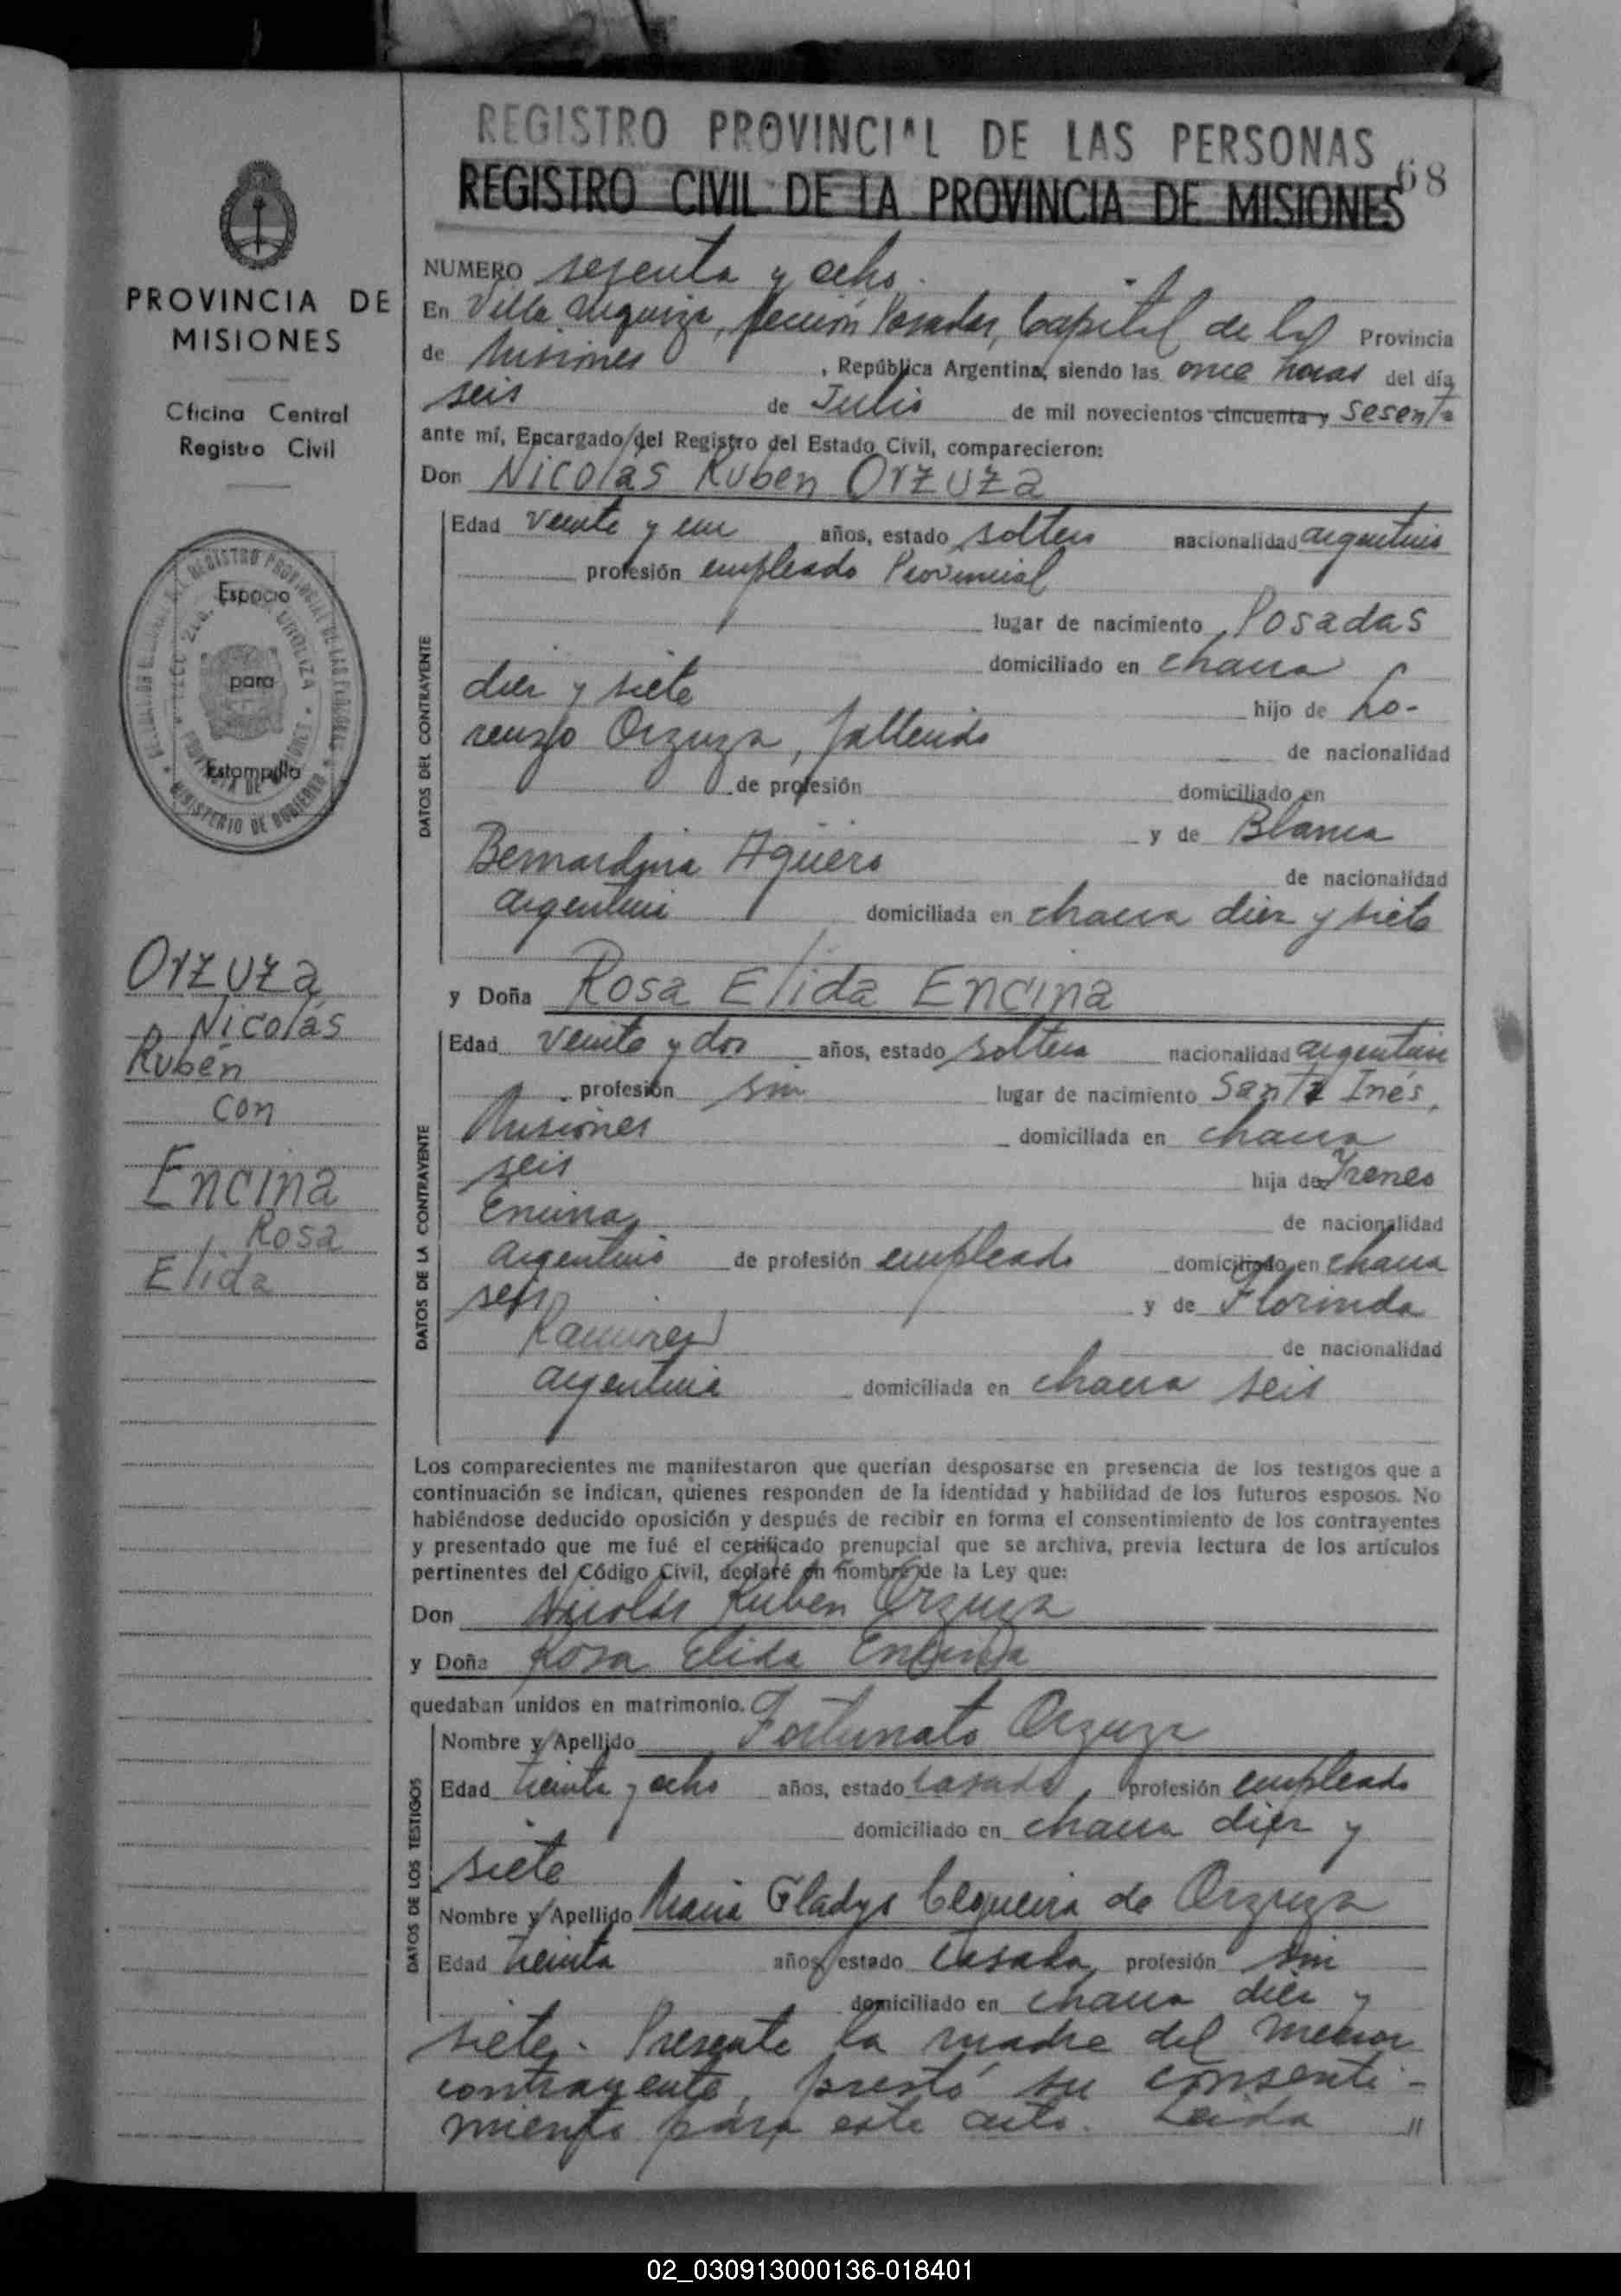 REGISTRO PROVINCIAL DE LAS PERSONAS
68
REGISTRO CIVIL DE LA PROVINCIA DE MISIONES
PROVINCIA DE
MISIONES
Oficina Central
Registro Civil
Espacio
para
Estampilla
Orzuza
Nicolás
Rubén
con
Encina
Rosa
Elida
NUMERO sesenta y ocho
En Villa Urquiza, sección Posadas, Capital de la Provincia
de Misiones, República Argentina, siendo las once horas del día
seis de Julio de mil novecientos cincuenta y sesenta
ante mí, Encargado del Registro del Estado Civil, comparecieron:
Don Nicolás Ruben Orzuza
DATOS DEL CONTRAYENTE
Edad veinte y un años, estado soltero nacionalidad argentino
profesión empleado Provincial
lugar de nacimiento Posadas
domiciliado en chacra
diez y siete hijo de Lo-
renzo Orzuza, fallecido de nacionalidad
de profesión domiciliado en
y de Blanca
Bernardina Agüero de nacionalidad
argentina domiciliada en chacra diez y siete
y Doña Rosa Elida Encina
DATOS DE LA CONTRAYENTE
Edad veinte y dos años, estado soltera nacionalidad argentina
profesión sin lugar de nacimiento Santa Inés,
Misiones domiciliada en chacra
seis hija de Irenes
Encina, de nacionalidad
argentino de profesión empleado domiciliado en chacra
seis y de Florinda
Ramirez de nacionalidad
argentina domiciliada en chacra seis
Los comparecientes me manifestaron que querían desposarse en presencia de los testigos que a
continuación se indican, quienes responden de la identidad y habilidad de los futuros esposos. No
habiéndose deducido oposición y después de recibir en forma el consentimiento de los contrayentes
y presentado que me fué el certificado prenupcial que se archiva, previa lectura de los artículos
pertinentes del Código Civil, declaré en nombre de la Ley que:
Don Nicolás Ruben Orzuza
y Doña Rosa Elida Encina
quedaban unidos en matrimonio.
DATOS DE LOS TESTIGOS
Nombre y Apellido Fortunato Orzuza
Edad treinta y ocho años, estado casado, profesión empleado
domiciliado en chacra diez y
siete
Nombre y Apellido Maria Gladys Cerqueira de Orzuza
Edad treinta años, estado casada, profesión sin
domiciliado en chacra diez y
siete. Presente la madre del menor
contrayente, prestó su consenti-
miento para este acto. Leida "
02_030913000136-018401